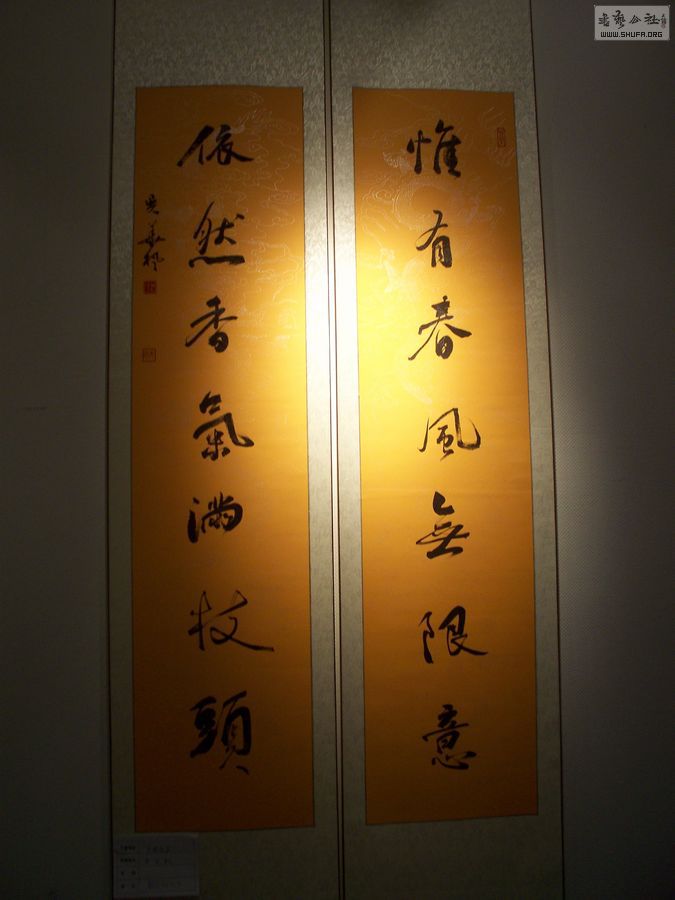 惟有春風無限意
依然香氣滿枝頭
書藝公社
WWW.SHUFA.ORG